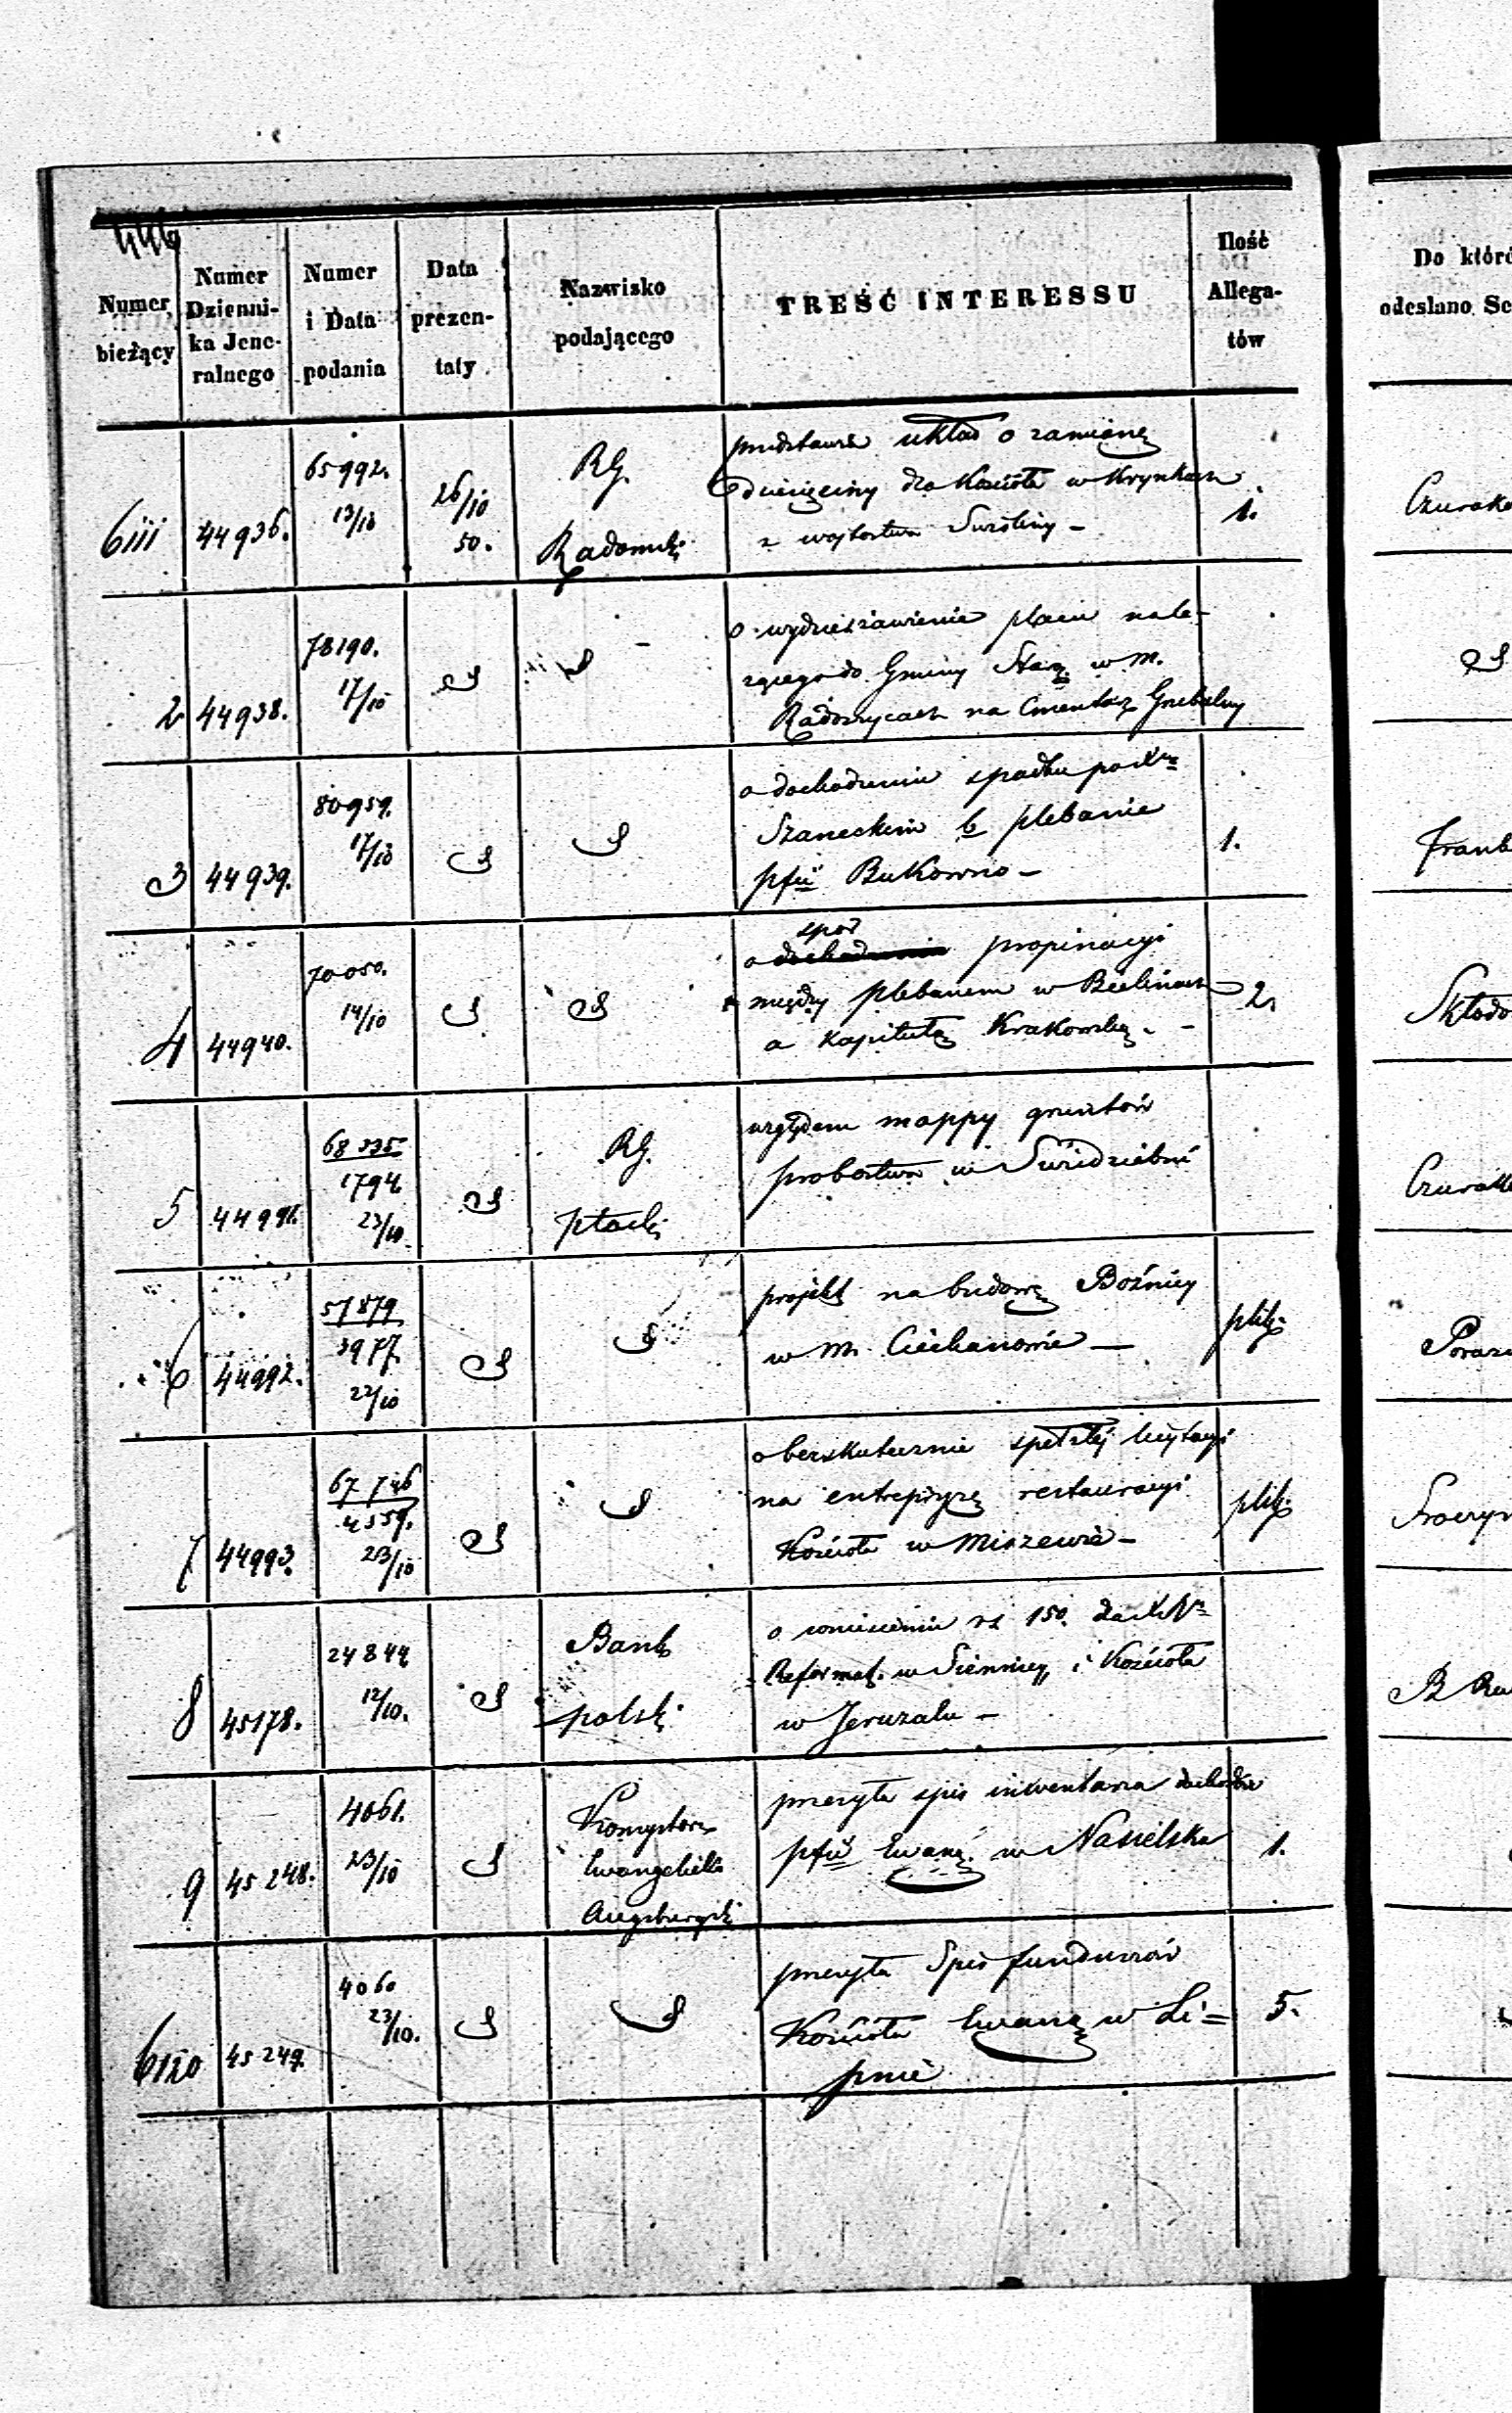 446
Numer bieżący
Numer Dzienni-ka Jene-ralnego
Numer i Data podania
Data prezen-taty
Nazwisko podającego
TREŚĆ INTERESSU
Ilość Allega-tów
Do któré
odesłano Se
6111 44936. 65992. 13/10 26/10 50. RG. Radomski
układ o zamianę
dziesięciny dla Kościoła w Krynkach
z wojtostwa
1.
2 44938. 78190. 17/10
o wydzierzawienie placu nale-
zącego do Gminy Star. w m.
Radoszycach na Cmentarz Grzebalny
3 44939. 80959. 17/10
o dochodzeniu spadku po
Szaneckim b. plebanie
pfii Bukowno -
1.
4 44940. 70050. 14/10
spór
o dochodzenia propinacyi
między plebanem w Bielinach
a Kapitułą Krakowską. -
2.
5 44991. 68335 1794 23/10 RG. płocki
względem mappy gruntów
probostwa w Swiedziebni
6 44992. 57879 3977. 22/10
projekt na budowę Bożnicy
w m. Ciechanowie -
plik.
7 44993. 67746 4559. 23/10
o bezskutecznie spełzłej licytacyi
na entrepryzę restauracyi
Kościoła w Miszewie -
plik.
8 45178. 24844 12/10. Bank polski
o rs 150.
Reformat. w Siennicy i Kościoła
w Jeruzalu -
9 45248. 4061. 23/10 Konsystorz Ewangelicko Augsburgski
przesyła spis inwentarza dochodów
pfii Ewang. w Nasielsku
1.
6120 45249. 4060 23/10.
przesyła Spis funduszów
Kościoła Ewang. w Li=
pnie
5.